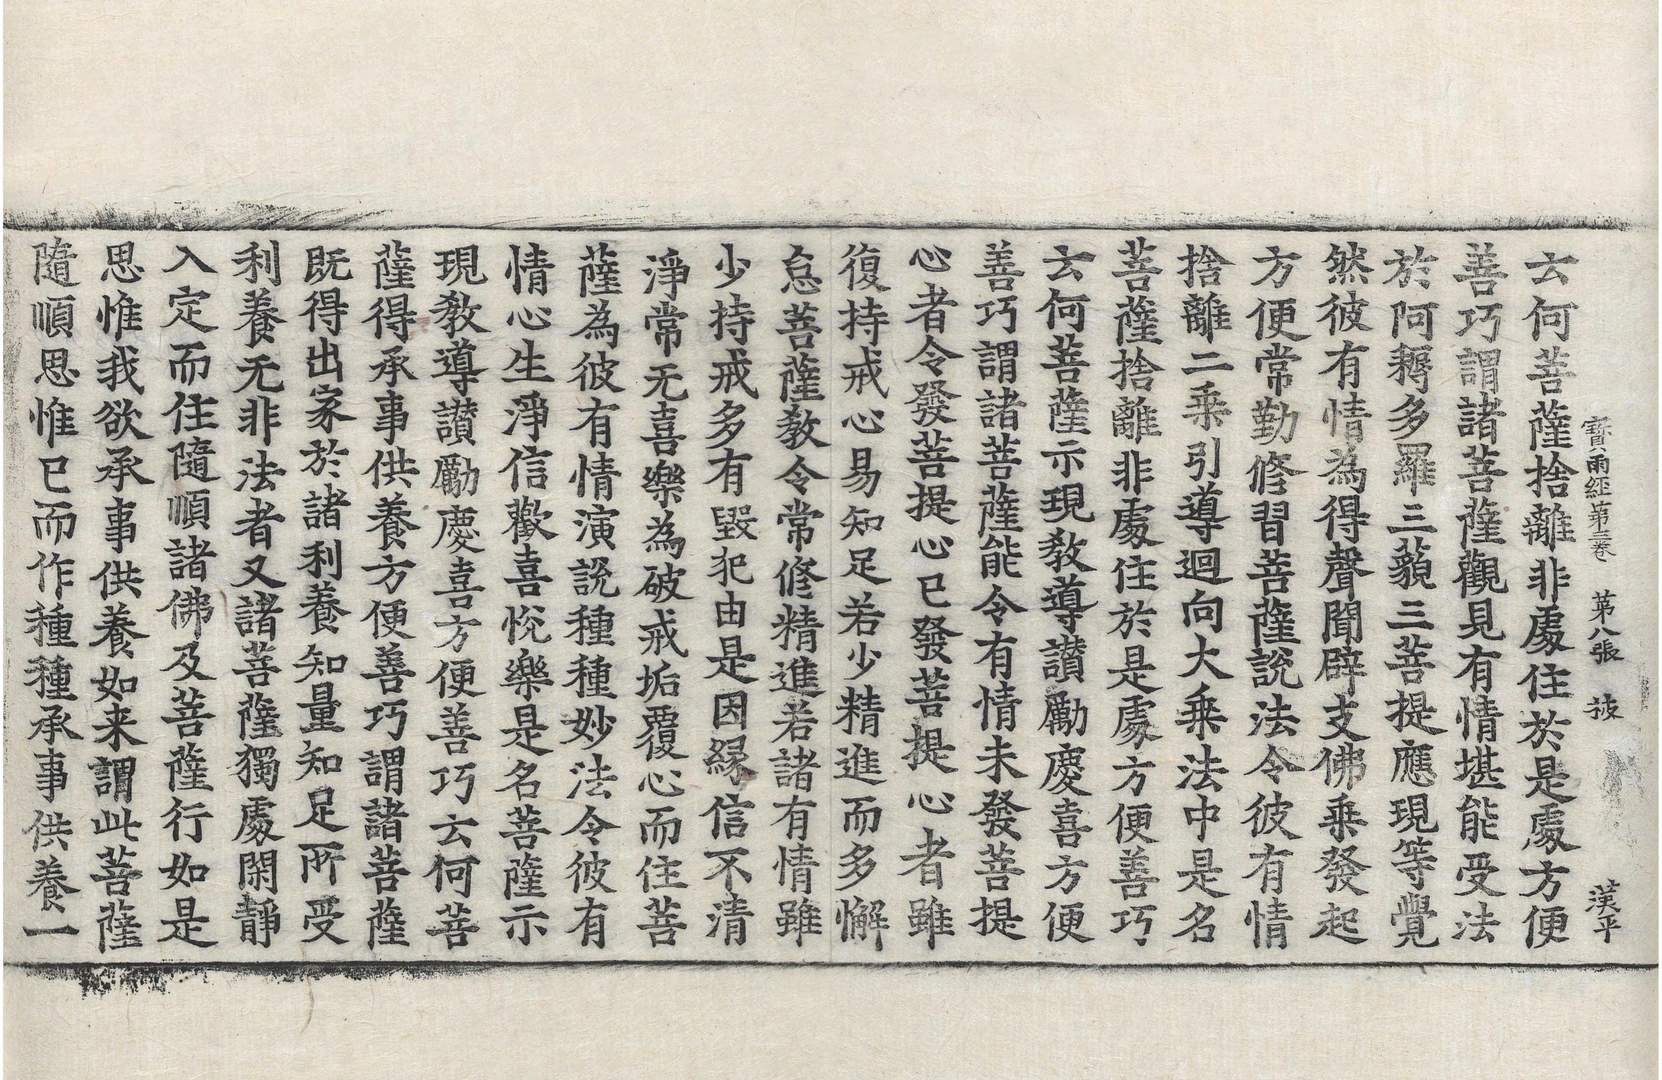 寶雨經第三卷 第八張 捘 漢平
云何菩薩捨離非處住於是處方便
善巧謂諸菩薩觀見有情堪能受法
於阿耨多羅三藐三菩提應現等覺
然彼有情為得聲聞辟支佛乘發起
方便常勤修習菩薩說法令彼有情
捨離二乘引導迴向大乘法中是名
菩薩捨離非處住於是處方便善巧
云何菩薩示現教導讚勵慶喜方便
善巧謂諸菩薩能令有情未發菩提
心者令發菩提心已發菩提心者雖
復持戒心易知足若少精進而多懈
怠菩薩教令常修精進若諸有情雖
少持戒多有毀犯由是因縁信不清
淨常无喜樂為破戒垢覆心而住菩
薩為彼有情演說種種妙法令彼有
情心生淨信歡喜悅樂是名菩薩示
現教導讚勵慶喜方便善巧云何菩
薩得承事供養方便善巧謂諸菩薩
既得出家於諸利養知量知足所受
利養无非法者又諸菩薩獨處閑靜
入定而住隨順諸佛及菩薩行如是
思惟我欲承事供養如来謂此菩薩
隨順思惟已而作種種承事供養一